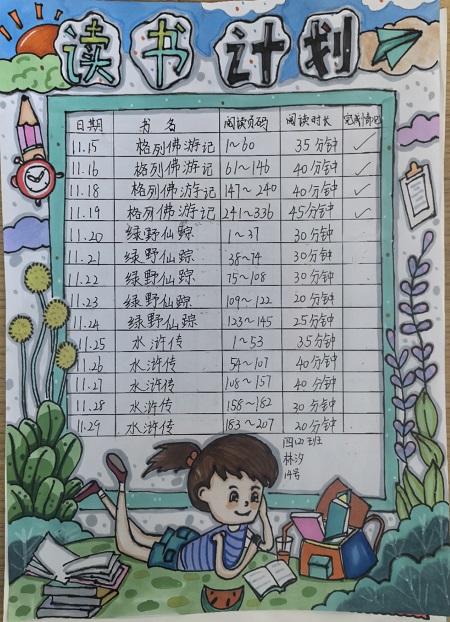 读书计划
日期 书名 阅读页码 阅读时长 完成情况
11.15 格列佛游记 1~60 35分钟 ✓
11.16 格列佛游记 61~146 40分钟 ✓
11.18 格列佛游记 147~240 40分钟 ✓
11.19 格列佛游记 241~336 45分钟 ✓
11.20 绿野仙踪 1~37 30分钟
11.21 绿野仙踪 38~74 30分钟
11.22 绿野仙踪 75~108 30分钟
11.23 绿野仙踪 109~122 20分钟
11.24 绿野仙踪 123~145 25分钟
11.25 水浒传 1~53 35分钟
11.26 水浒传 54~107 40分钟
11.27 水浒传 108~157 40分钟
11.28 水浒传 158~182 30分钟
11.29 水浒传 183~207 20分钟
四(2)班
林汐
14号